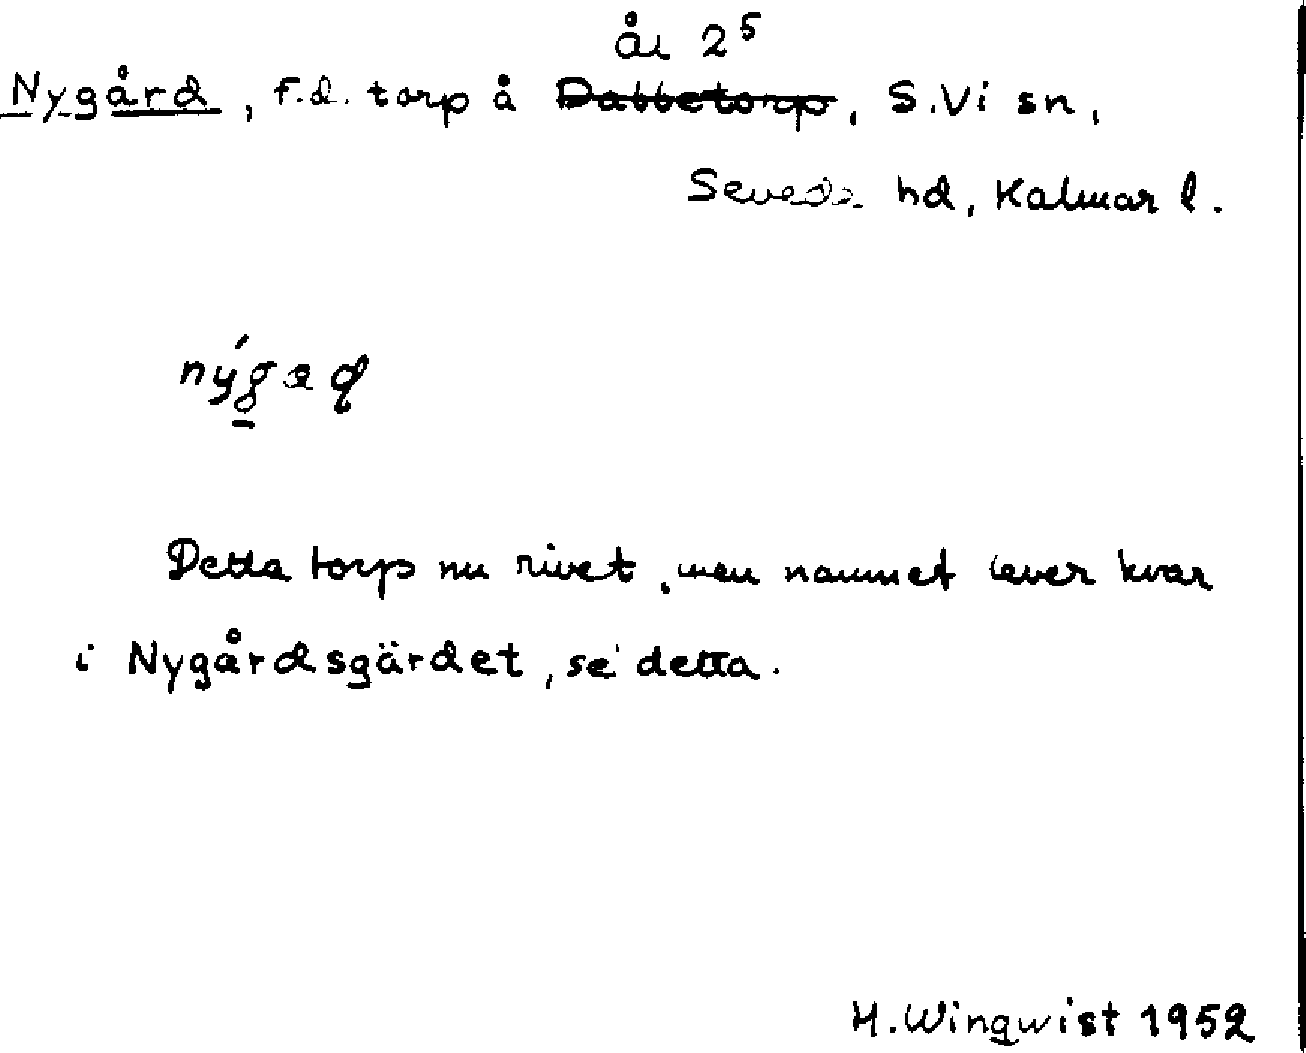 Ål 2⁵
Nygård, f.d. torp å Dabbetorp, S.Vi sn,
Sevede hd, Kalmar l.
Detta torp nu rivet, men namnet lever kvar
i Nygårdsgärdet, se detta.
H.Wingwist 1952